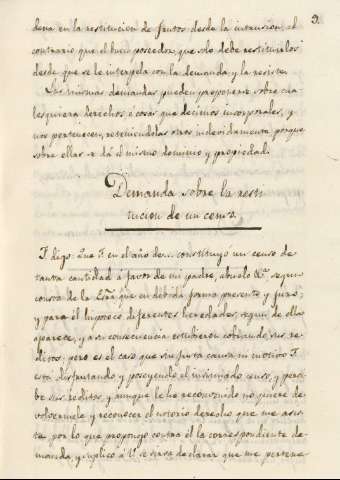 9.
dena en la restitucion de frutos desde la intrusion, al
contrario que el buen poseedor, que solo debe restituirlos
desde que se le interpela con la demanda y la resiste.
Las mismas demandas, pueden proponerse sobre cua
lesquiera derechos ó cosas que decimos incorporales, y
nos pertenecen, reteniendolas otros indevidamente, porque
sobre ellas se dá el mismo dominio y propiedad.
Demanda sobre la resti
tucion de un censo.
F. digo: Que F. en el año de... constituyó un censo de
tanta cantidad á favor de mi padre, abuelo &ª. segun
consta de la Esñª que en debida forma presento y juro;
y para él impuso diferentes heredades, segun de ella
aparece, y á su consecuencia estubieron cobrando sus re
ditos; pero es el caso que sin justa causa ni motivo F.
está disfrutando y poseyendo el insinuado censo, y perci
be sus reditos, y aunque le he reconvenido no quiere de
volvermele y reconocer el notorio derecho que me asis
te, por lo que propongo contra él la correspondiente de
manda, y suplico á V. se sirva declarar que me pertene